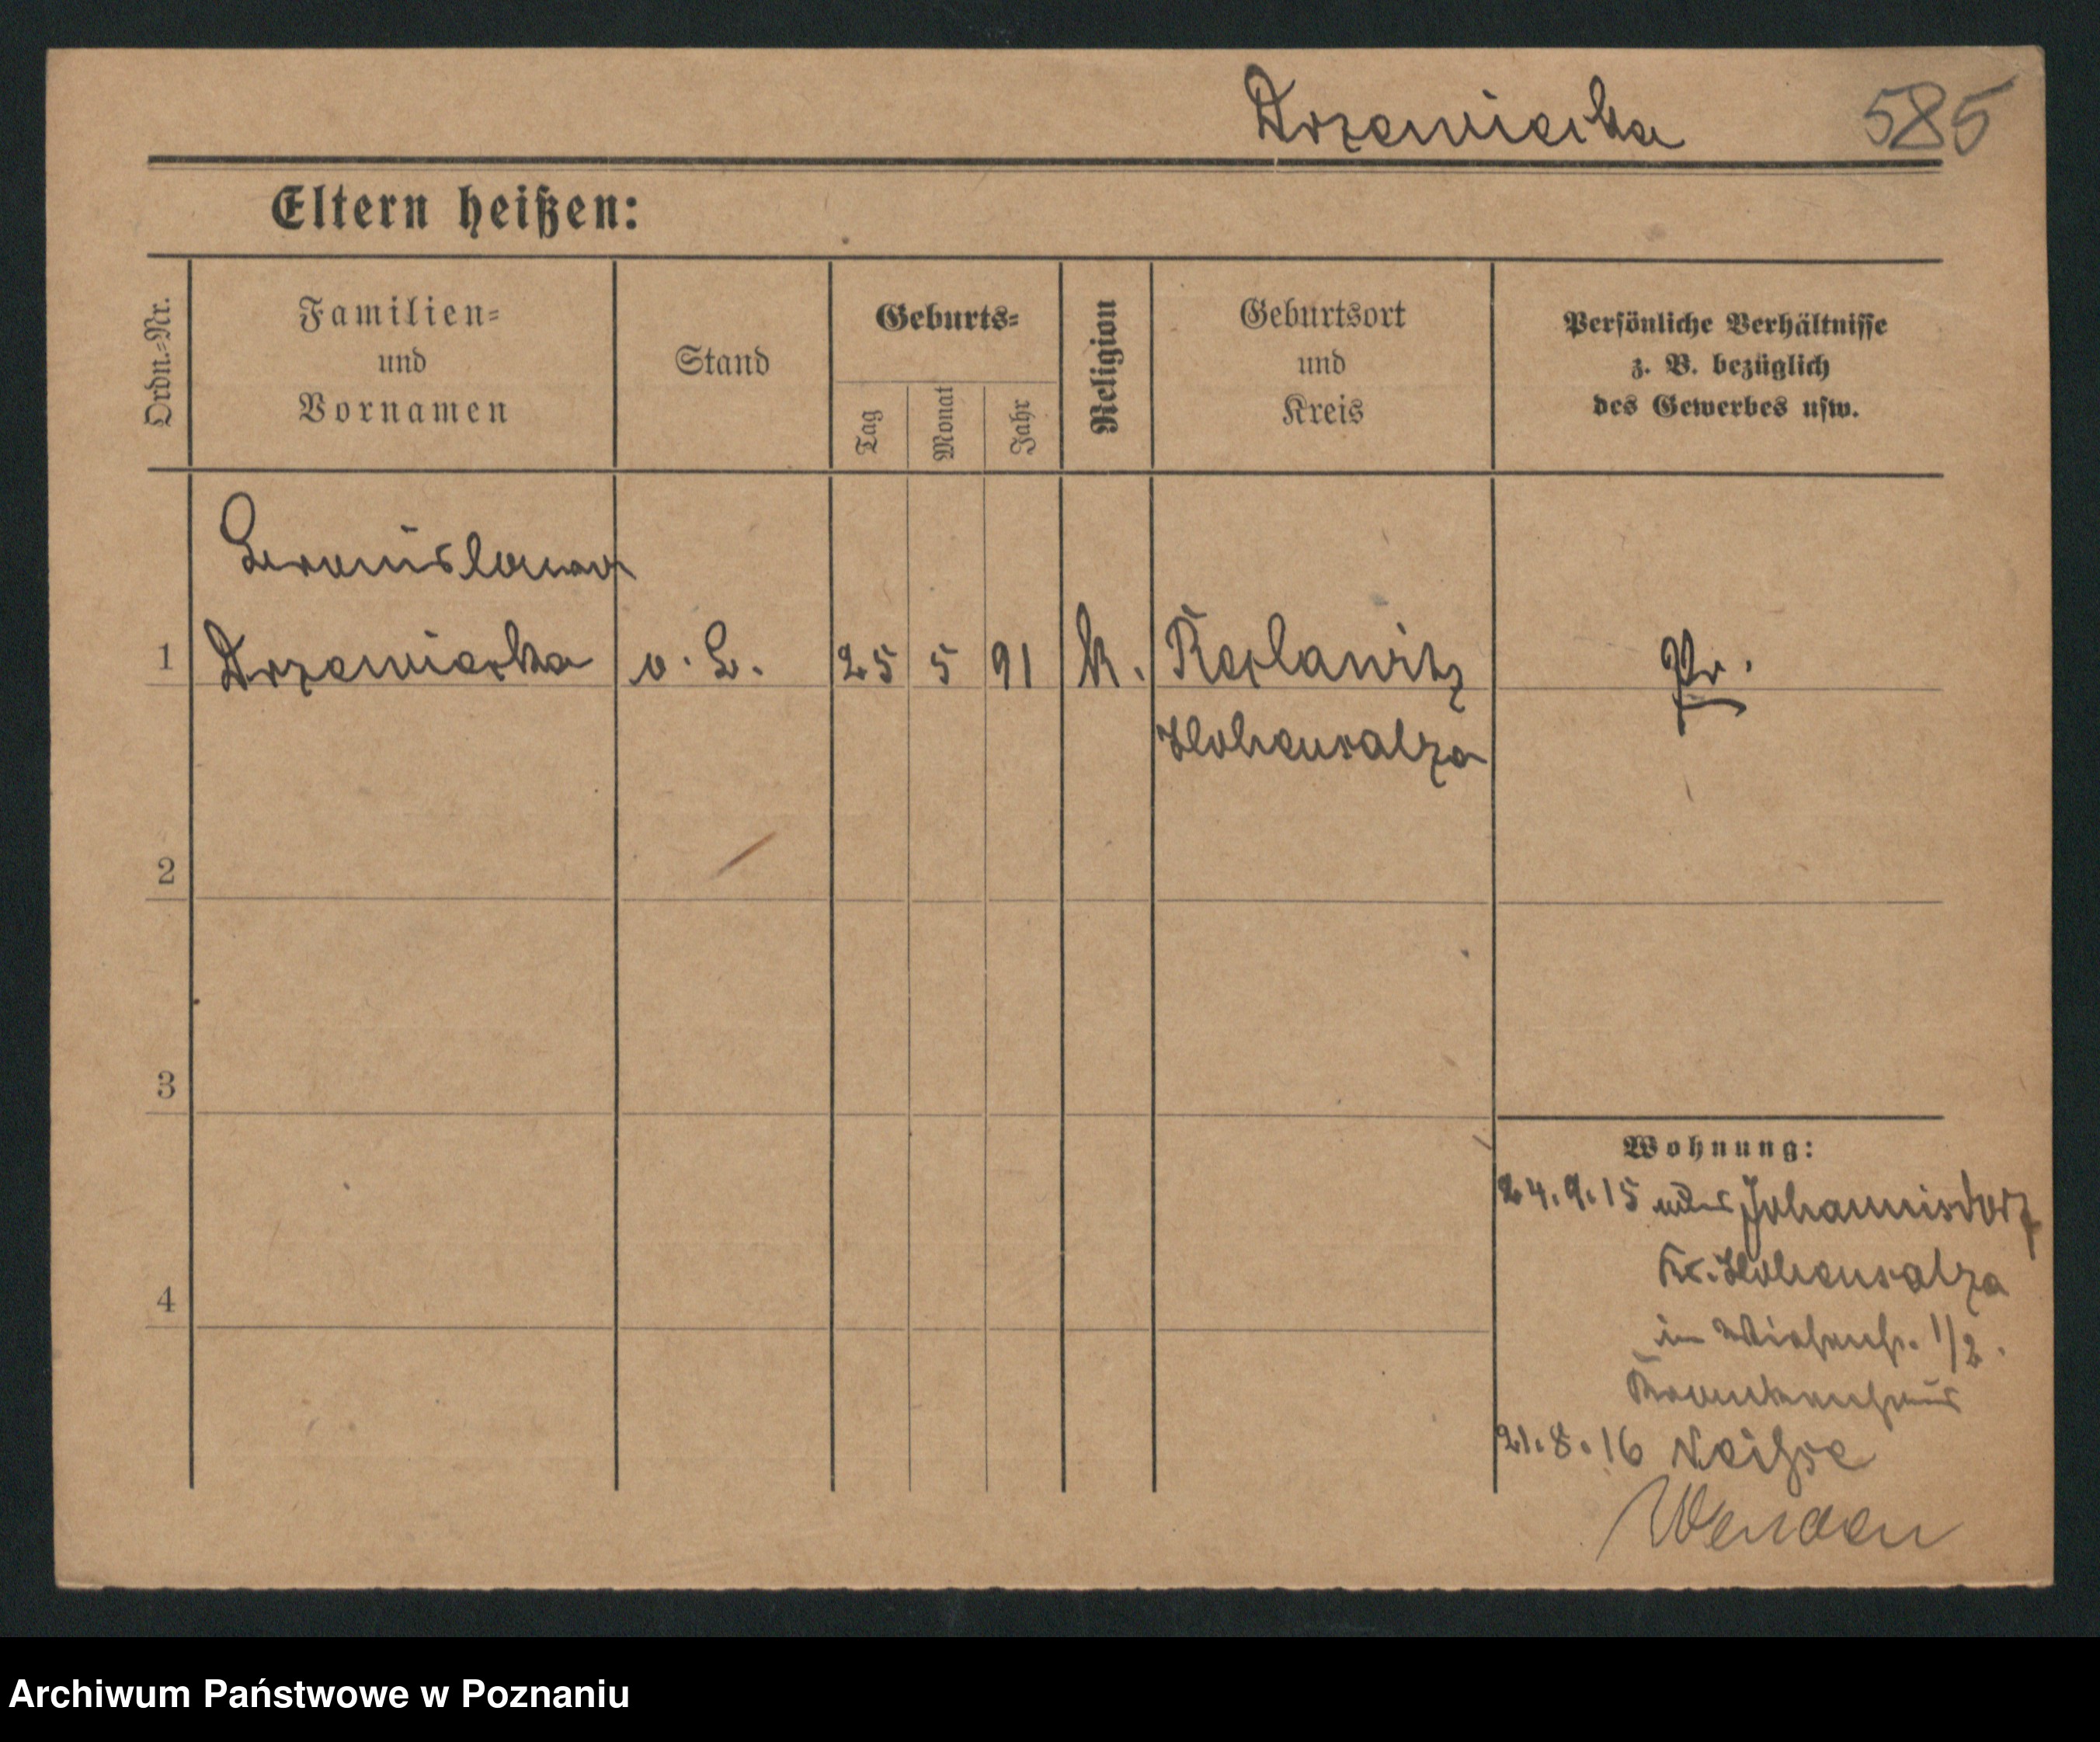 Drzewiecka 585
Eltern heißen:
Ordn.-Nr.
Familien-
und
Vornamen
Stand
Geburts-
Tag
Monat
Jahr
Religion
Geburtsort
und
Kreis
Persönliche Verhältnisse
z. B. bezüglich
des Gewerbes usw.
Bronislawa
1 Drzewiecka o. B. 25 5 91 k. Raclawitz Pr.
Hohensalza
2
3
4
Wohnung:
24.9.15 aus Johannisdorf
Kr. Hohensalza
in 1/2.
Krankenhaus
21.8.16 Neisse
Archiwum Państwowe w Poznaniu